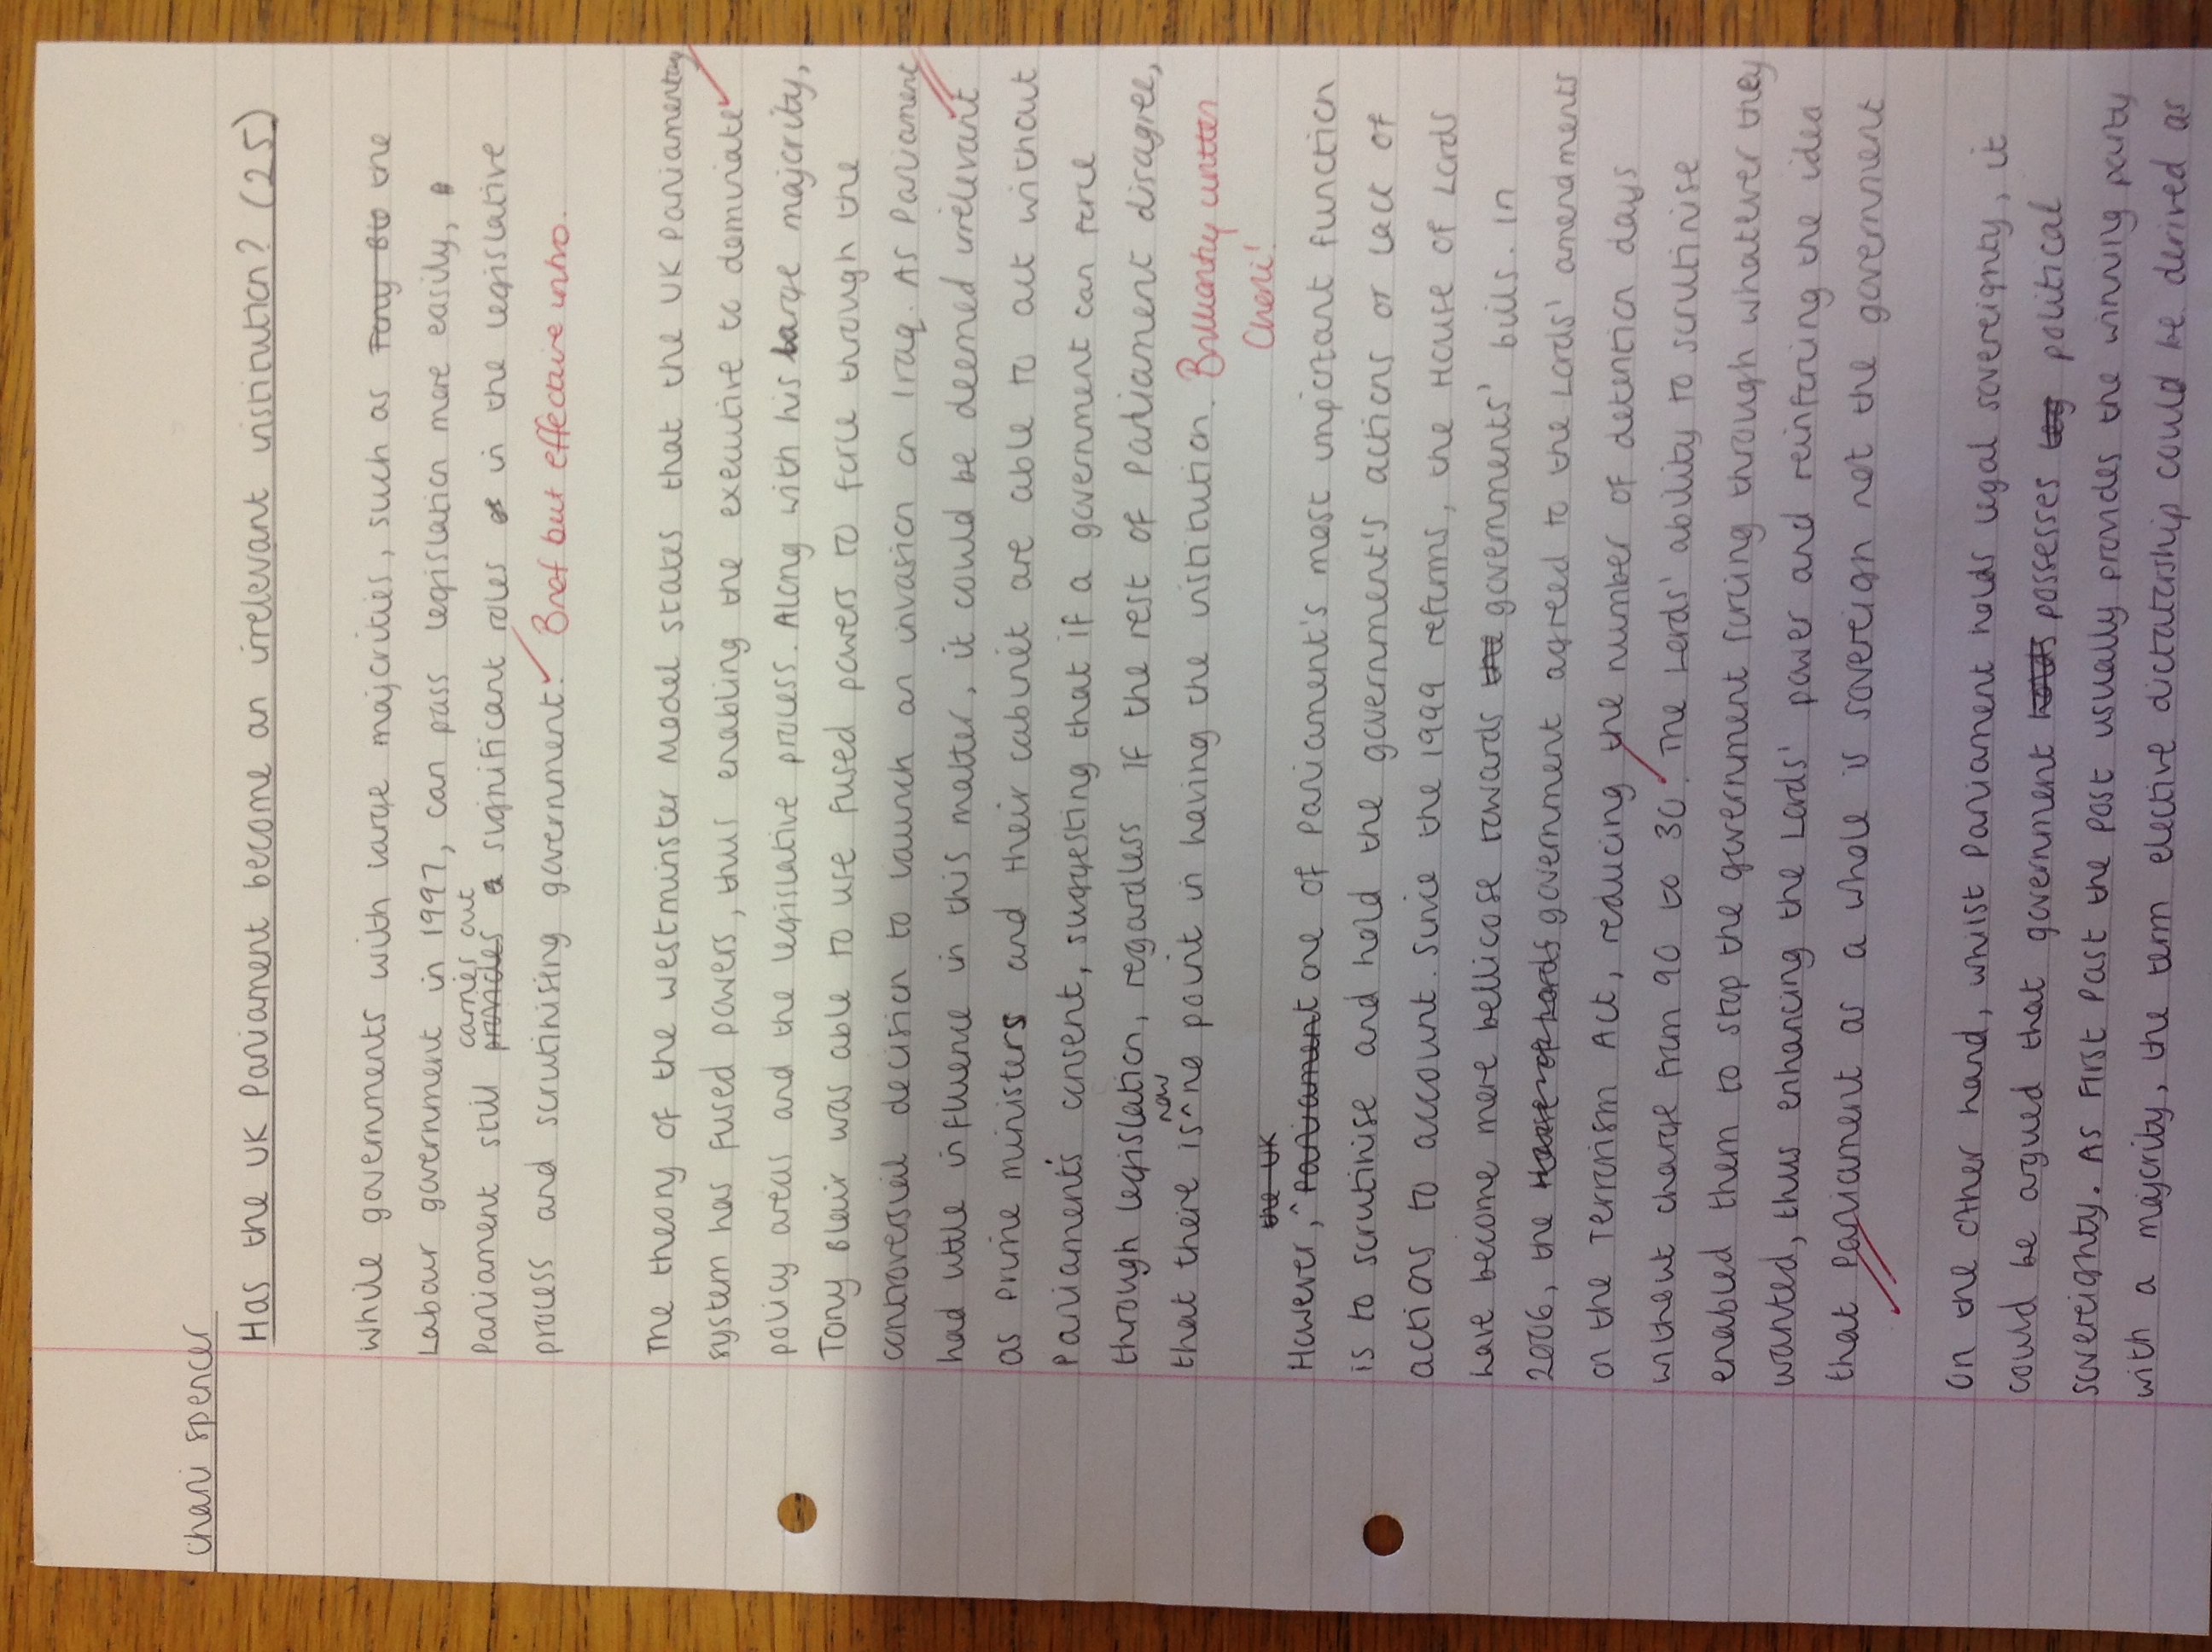 Cheni Spencer
Has the UK Parliament become an irrelevant institution? (25)
While governments with large majorities, such as Tony Bto the
Labour government in 1997, can pass legislation more easily,
Parliament still provides carries out a significant roles of in the legislative
process and scrutinising government. Brief but effective intro.
The theory of the Westminster Model states that the UK Parliamentary
system has fused powers, thus enabling the executive to dominate
policy areas and the legislative process. Along with his large majority,
Tony Blair was able to use fused powers to force through the
controversial decision to launch an invasion on Iraq. As Parliament
had little influence in this matter, it could be deemed irrelevant
as prime ministers and their cabinet are able to act without
Parliament's consent, suggesting that if a government can force
through legislation, regardless if the rest of Parliament disagree,
that there is now no point in having the institution. Brilliantly written
Cheni!
However, the UK Parliament one of Parliament's most important function
is to scrutinise and hold the government's actions or lack of
actions to account. Since the 1999 reforms, the House of Lords
have become more bellicose towards the governments' bills. In
2006, the House of Lords government agreed to the Lords' amendments
on the Terrorism Act, reducing the number of detention days
without charge from 90 to 30. The Lords' ability to scrutinise
enabled them to stop the government forcing through whatever they
wanted, thus enhancing the Lords' power and reinforcing the idea
that Parliament as a whole is sovereign not the government
On the other hand, whist Parliament holds legal sovereignty, it
could be argued that government holds possesses leg political
sovereignty. As First Past the Post usually provides the winning party
with a majority, the term elective dictatorship could be derived as